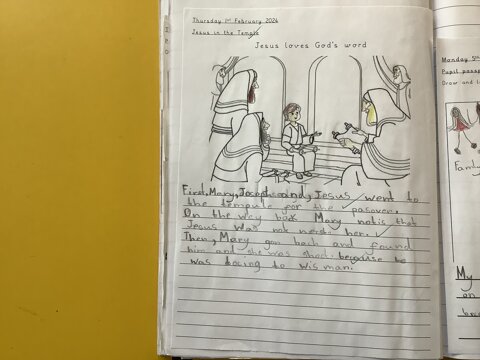 Thursday 1st February 2024
Jesus in the Temple
Jesus loves God's word
First, Mary, Joseph and, Jesus went to
the tempule for the pasover.
On the way back Mary notis that
Jesus was not next her.
Then, Mary gon bach and found
him and she was shoc. because he
was tocing to wis man.
Monday 5th
Pupil passp
Draw and l
Family
My
on